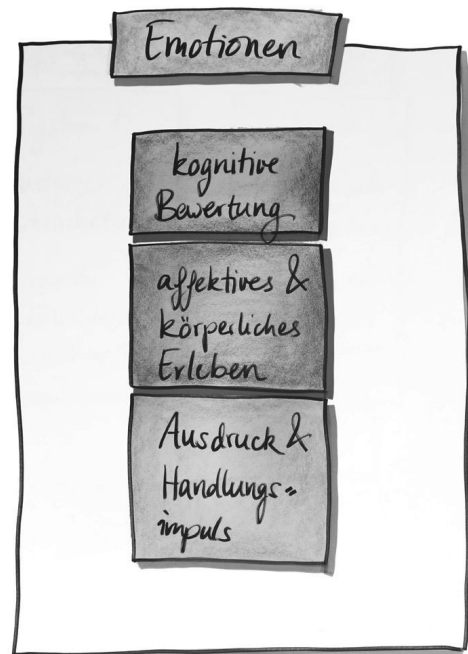 Emotionen
kognitive
Bewertung
affektives &
körperliches
Erleben
Ausdruck &
Handlungs=
impuls